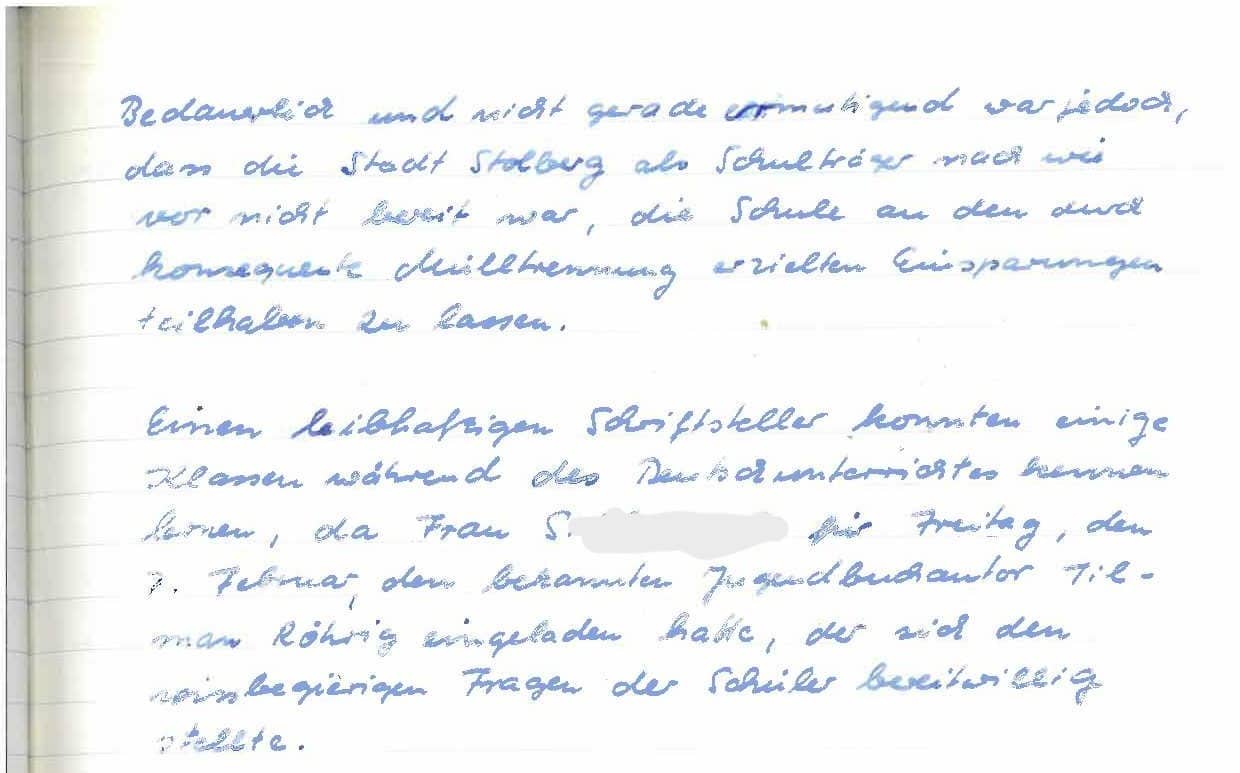 Bedauerlich und nicht gerade ermutigend war jedoch,
dass die Stadt Stolberg als Schulträger nach wie
vor nicht bereit war, die Schule an den durch
konsequente Mülltrennung erzielten Einsparungen
teilhaben zu lassen.
Einen leibhaftigen Schriftsteller konnten einige
Klassen während des Deutschunterrichtes kennen
lernen, da Frau S. für Freitag, den
7. Februar, den bekannten Jugendbuchautor Til-
man Röhrig eingeladen hatte, der sich den
wissbegierigen Fragen der Schüler bereitwillig
stellte.